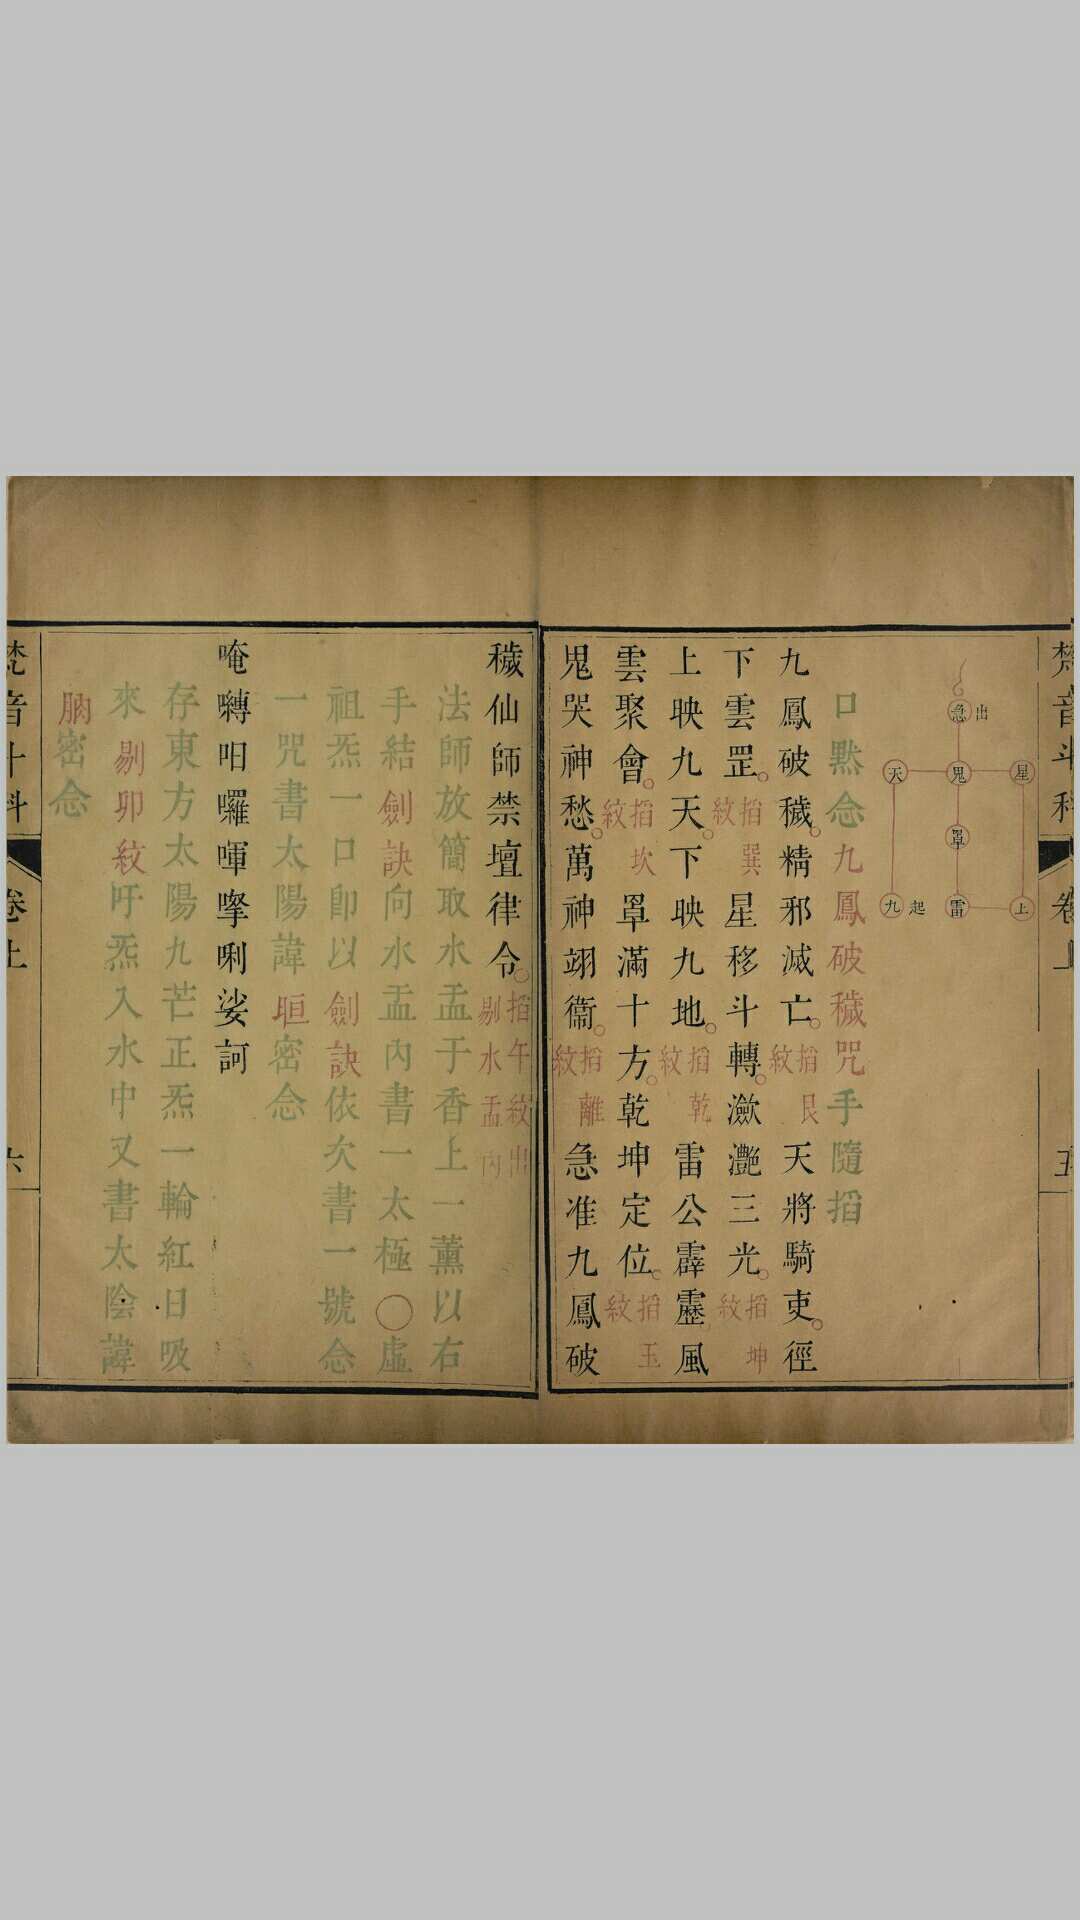 梵音斗科
卷上
五
急 出
天 鬼 星
罩
九 起 雷 上
口黙念九鳳破穢咒手隨搯
九鳳破穢。精邪滅亡。搯艮紋天將騎吏。徑
下雲罡。搯巽紋星移斗轉。瀲灧三光。搯坤紋
上映九天。下映九地。搯乾紋雷公霹靂。風
雲聚會。搯坎紋罩滿十方。乾坤定位。搯玉紋
鬼哭神愁。萬神翊衞。搯離紋急准九鳳破
穢仙師禁壇律令。搯午紋出剔水盂內
法師放簡取水盂于香上一薰以右
手結劍訣向水盂內書一太極〇虛
祖炁一口即以劍訣依次書一號念
一咒書太陽諱 密念
唵囀呬囉㖶㨗唎娑訶
存東方太陽九芒正炁一輪紅日吸
來剔卯紋吁炁入水中又書太陰諱
密念
梵音斗科
卷上
六